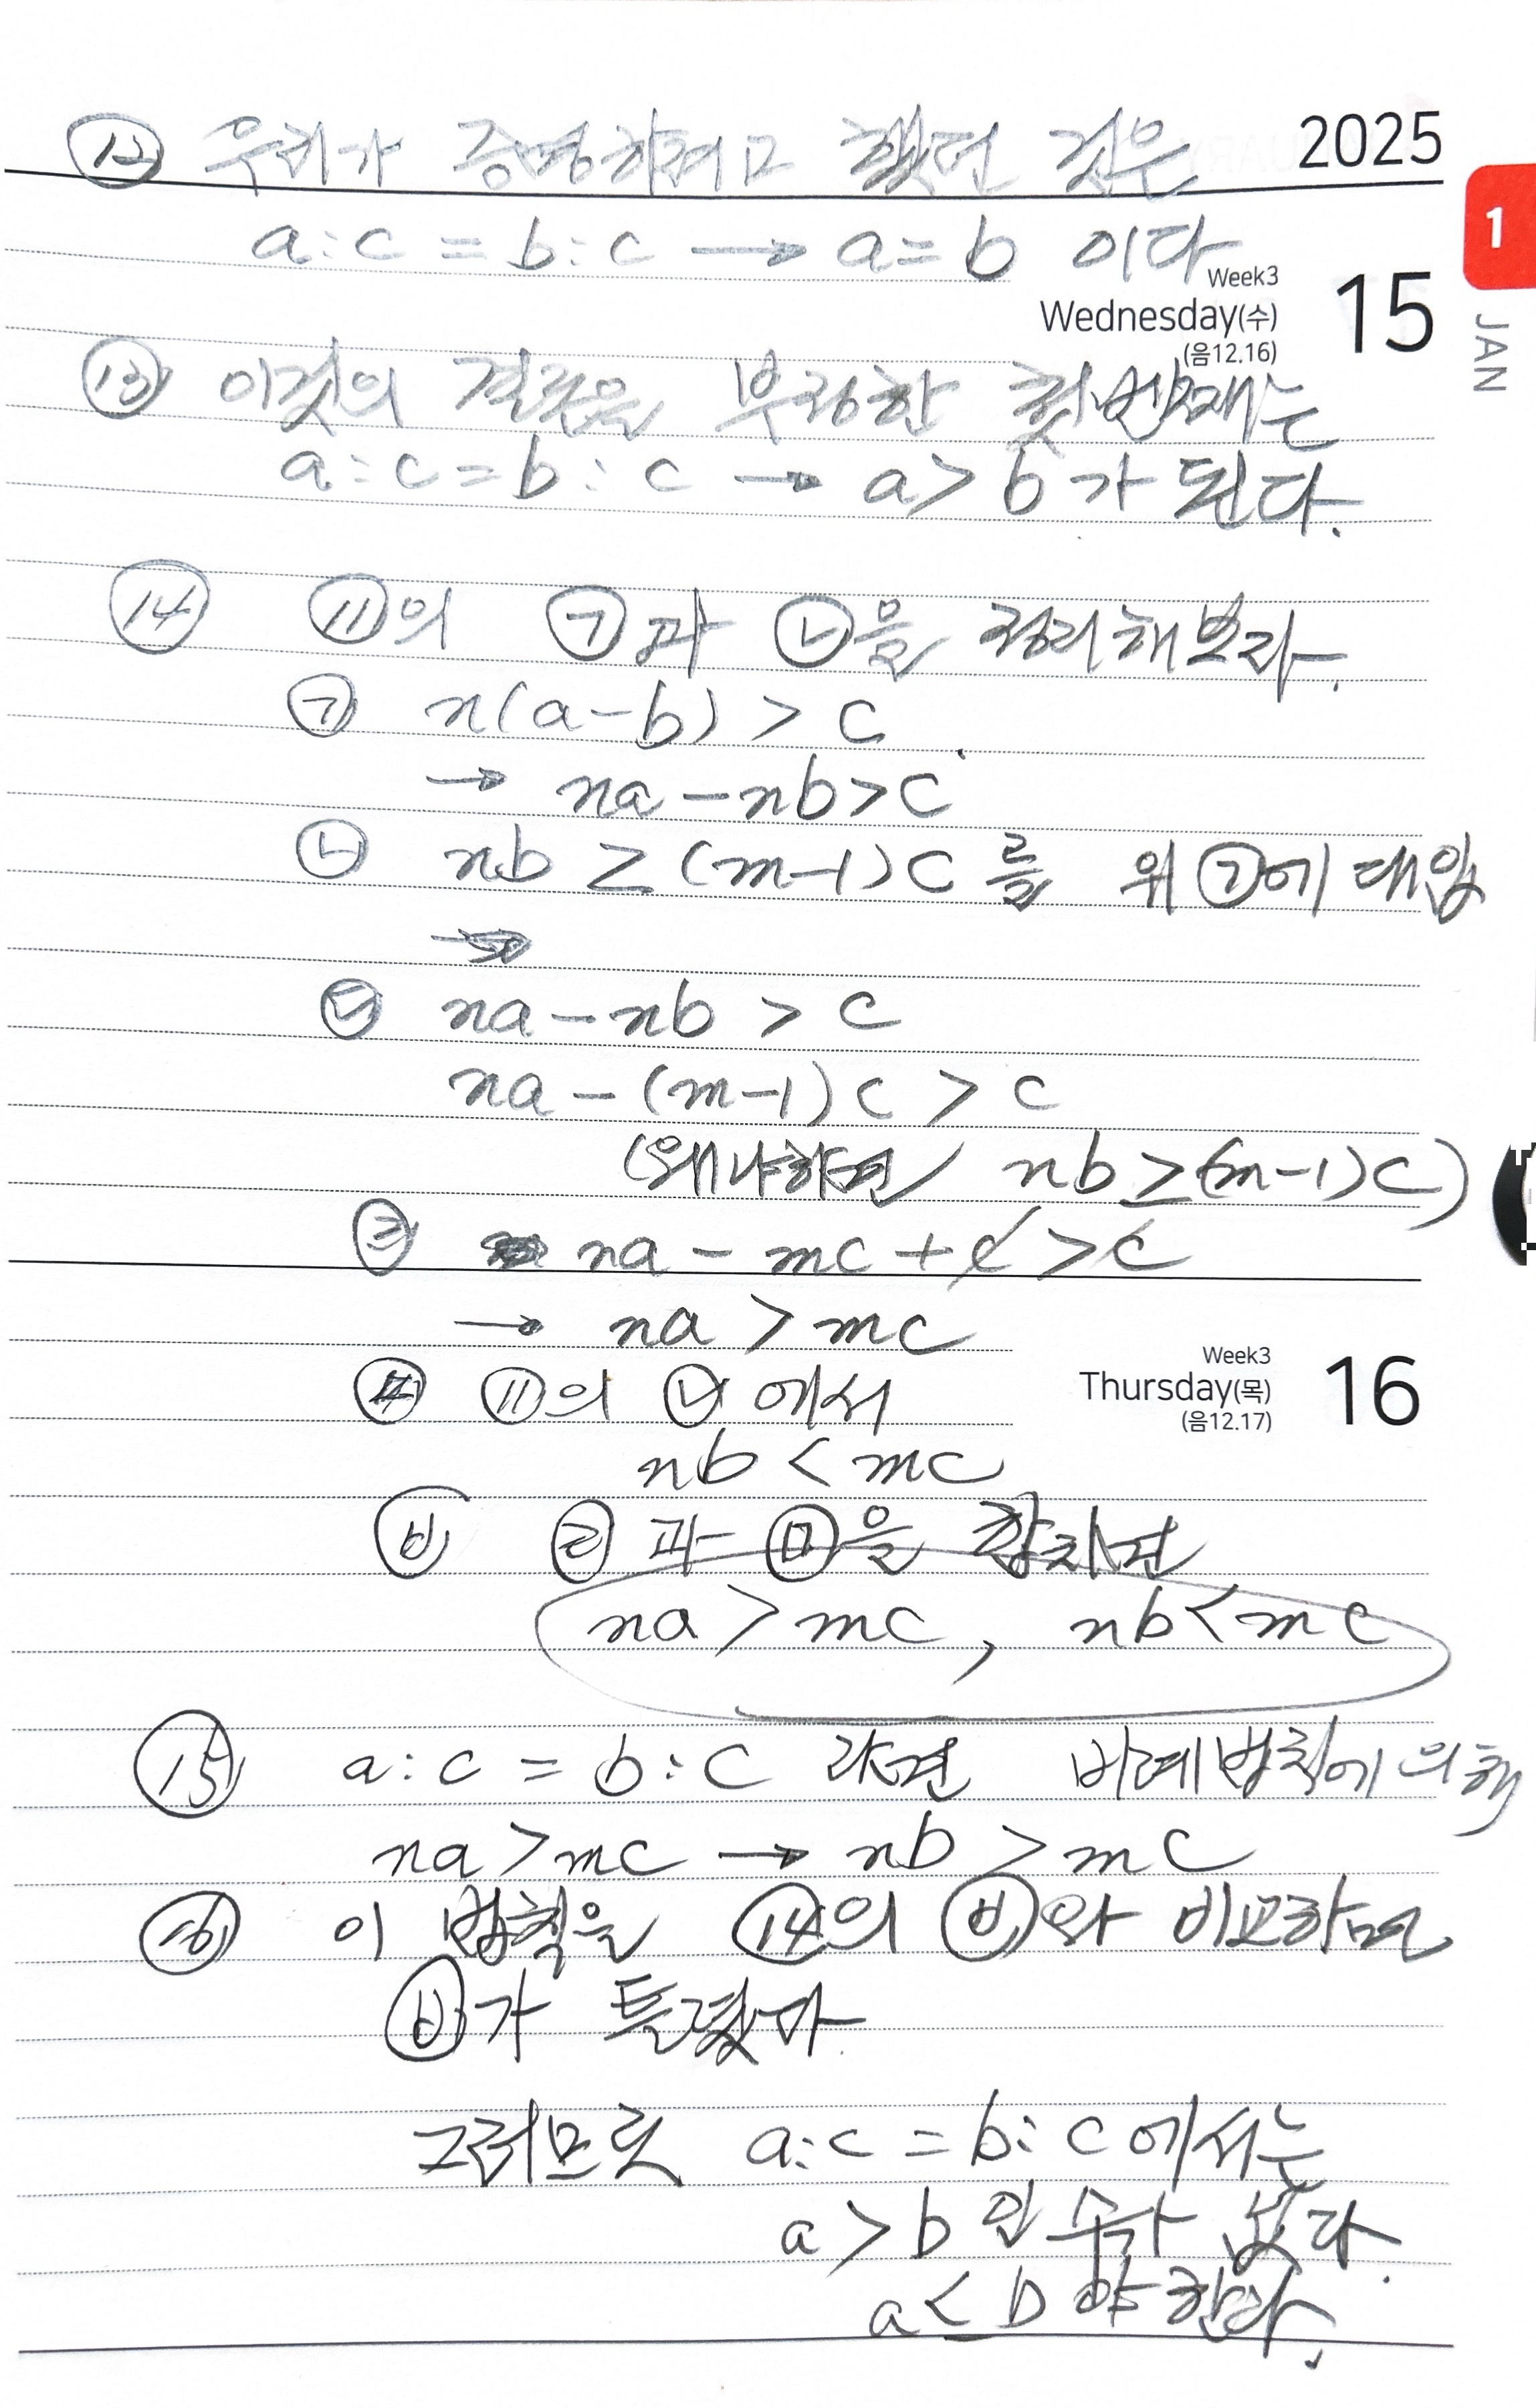 ⑫ 우리가 증명하려고 했던 것은
2025
a:c = b:c → a=b 이다
1
JAN
Week3
Wednesday(수)
15
(음12.16)
⑬ 이것의 결론을 부정한 첫번째는
a:c=b:c → a>b가 된다.
⑭ ⑪의 ㉠과 ㉡을 정리해보라.
㉠ n(a-b) > c
→ na-nb>c
㉡ nb ≥ (m-1)c 를 위 ㉠에 대입
→
㉢ na-nb > c
na-(m-1)c > c
(왜냐하면 nb≥(m-1)c)
㉣ na - mc + c > c
→ na > mc
㉤ ⑪의 ㉡에서
Week3
Thursday(목)
16
(음12.17)
nb < mc
㉥ ㉣과 ㉤을 합치면
na > mc, nb < mc
⑮ a:c = b:c 라면 비례법칙에 의해
na>mc → nb > mc
⑯ 이 법칙을 ⑭의 ㉥와 비교하면
㉥가 틀렸다.
그러므로 a:c = b:c에서는
a>b인 수가 없다.
a≤b야 한다.